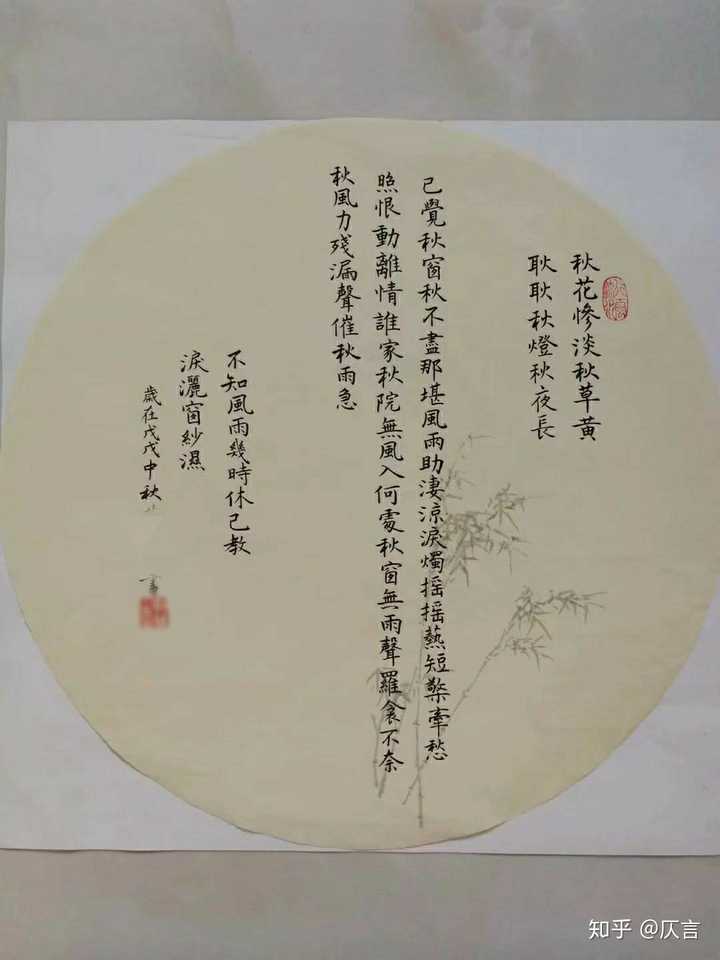 秋花慘淡秋草黃
耿耿秋燈秋夜長
已覺秋窗秋不盡那堪風雨助淒涼淚燭搖搖爇短檠牽愁
照恨動離情誰家秋院無風入何處秋窗無雨聲羅衾不奈
秋風力殘漏聲催秋雨急
不知風雨幾時休已教
淚灑窗紗濕
歲在戊戌中秋
書
知乎 @仄言